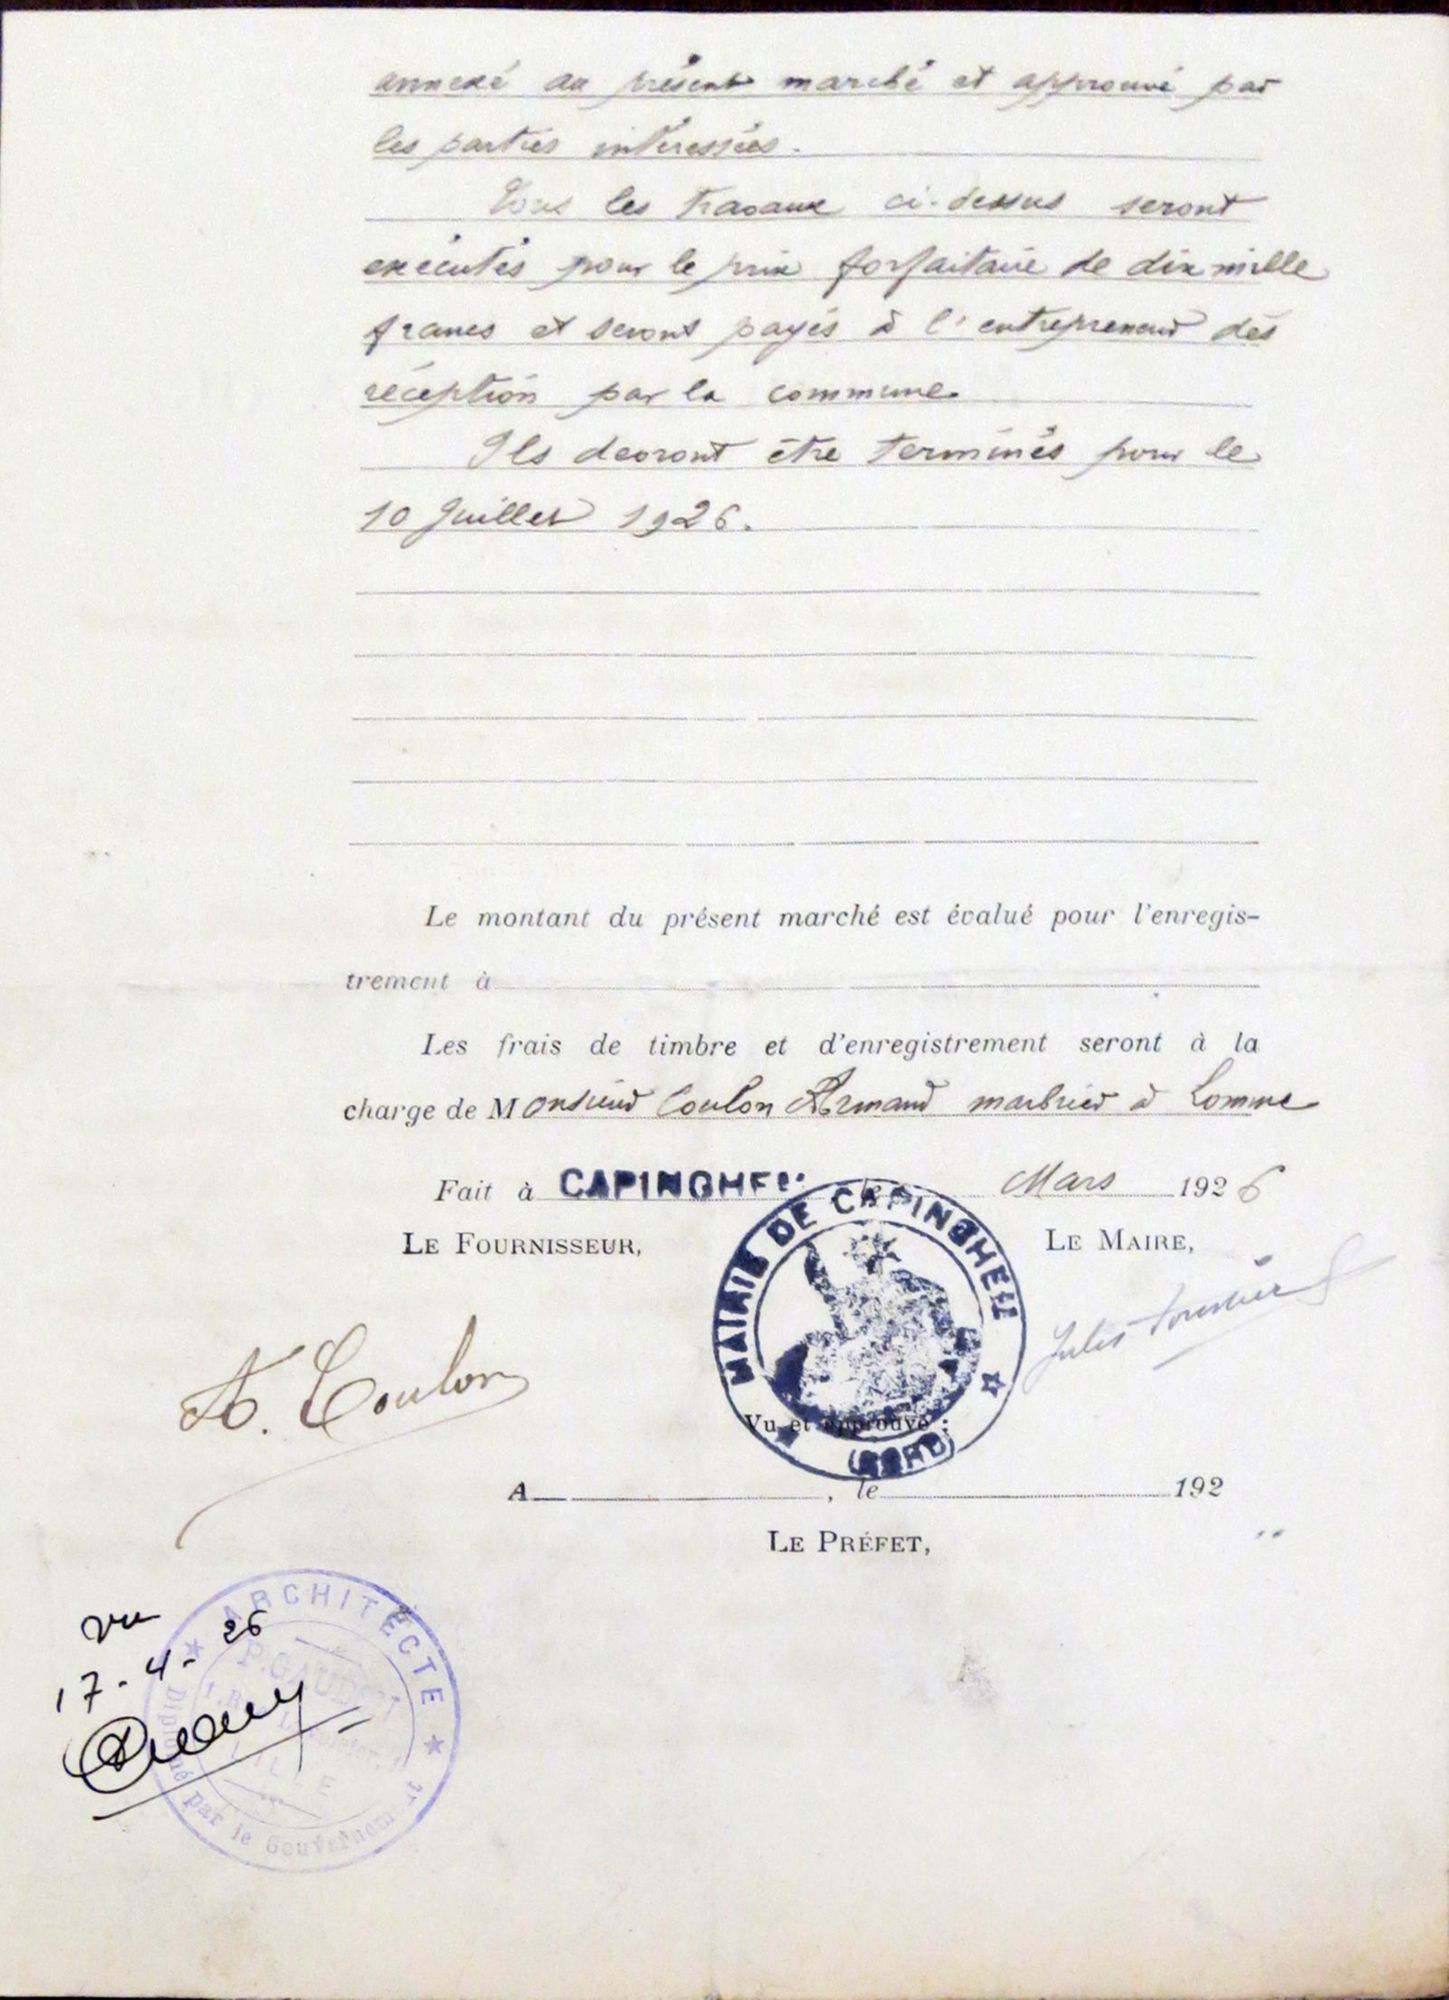 annexé au présent marché et approuvé par
les parties intéressées.
Tous les travaux ci-dessus seront
exécutés pour le prix forfaitaire de dix mille
francs et seront payés à l'entrepreneur dès
réception par la commune
Ils devront être terminés pour le
10 Juillet 1926.
Le montant du présent marché est évalué pour l'enregis-
trement à
Les frais de timbre et d'enregistrement seront à la
charge de Monsieur Coulon Armand marbrier à Lomme
Fait à CAPINGHEM le Mars 1926
LE FOURNISSEUR,
LE MAIRE,
MAIRIE DE CAPINGHEM
(NORD)
A. Coulon
Jules
Vu et approuvé :
A , le 192
LE PRÉFET,
Vu
17.4.26
ARCHITECTE
P. GAUDET
LILLE
Diplômé par le Gouvernement